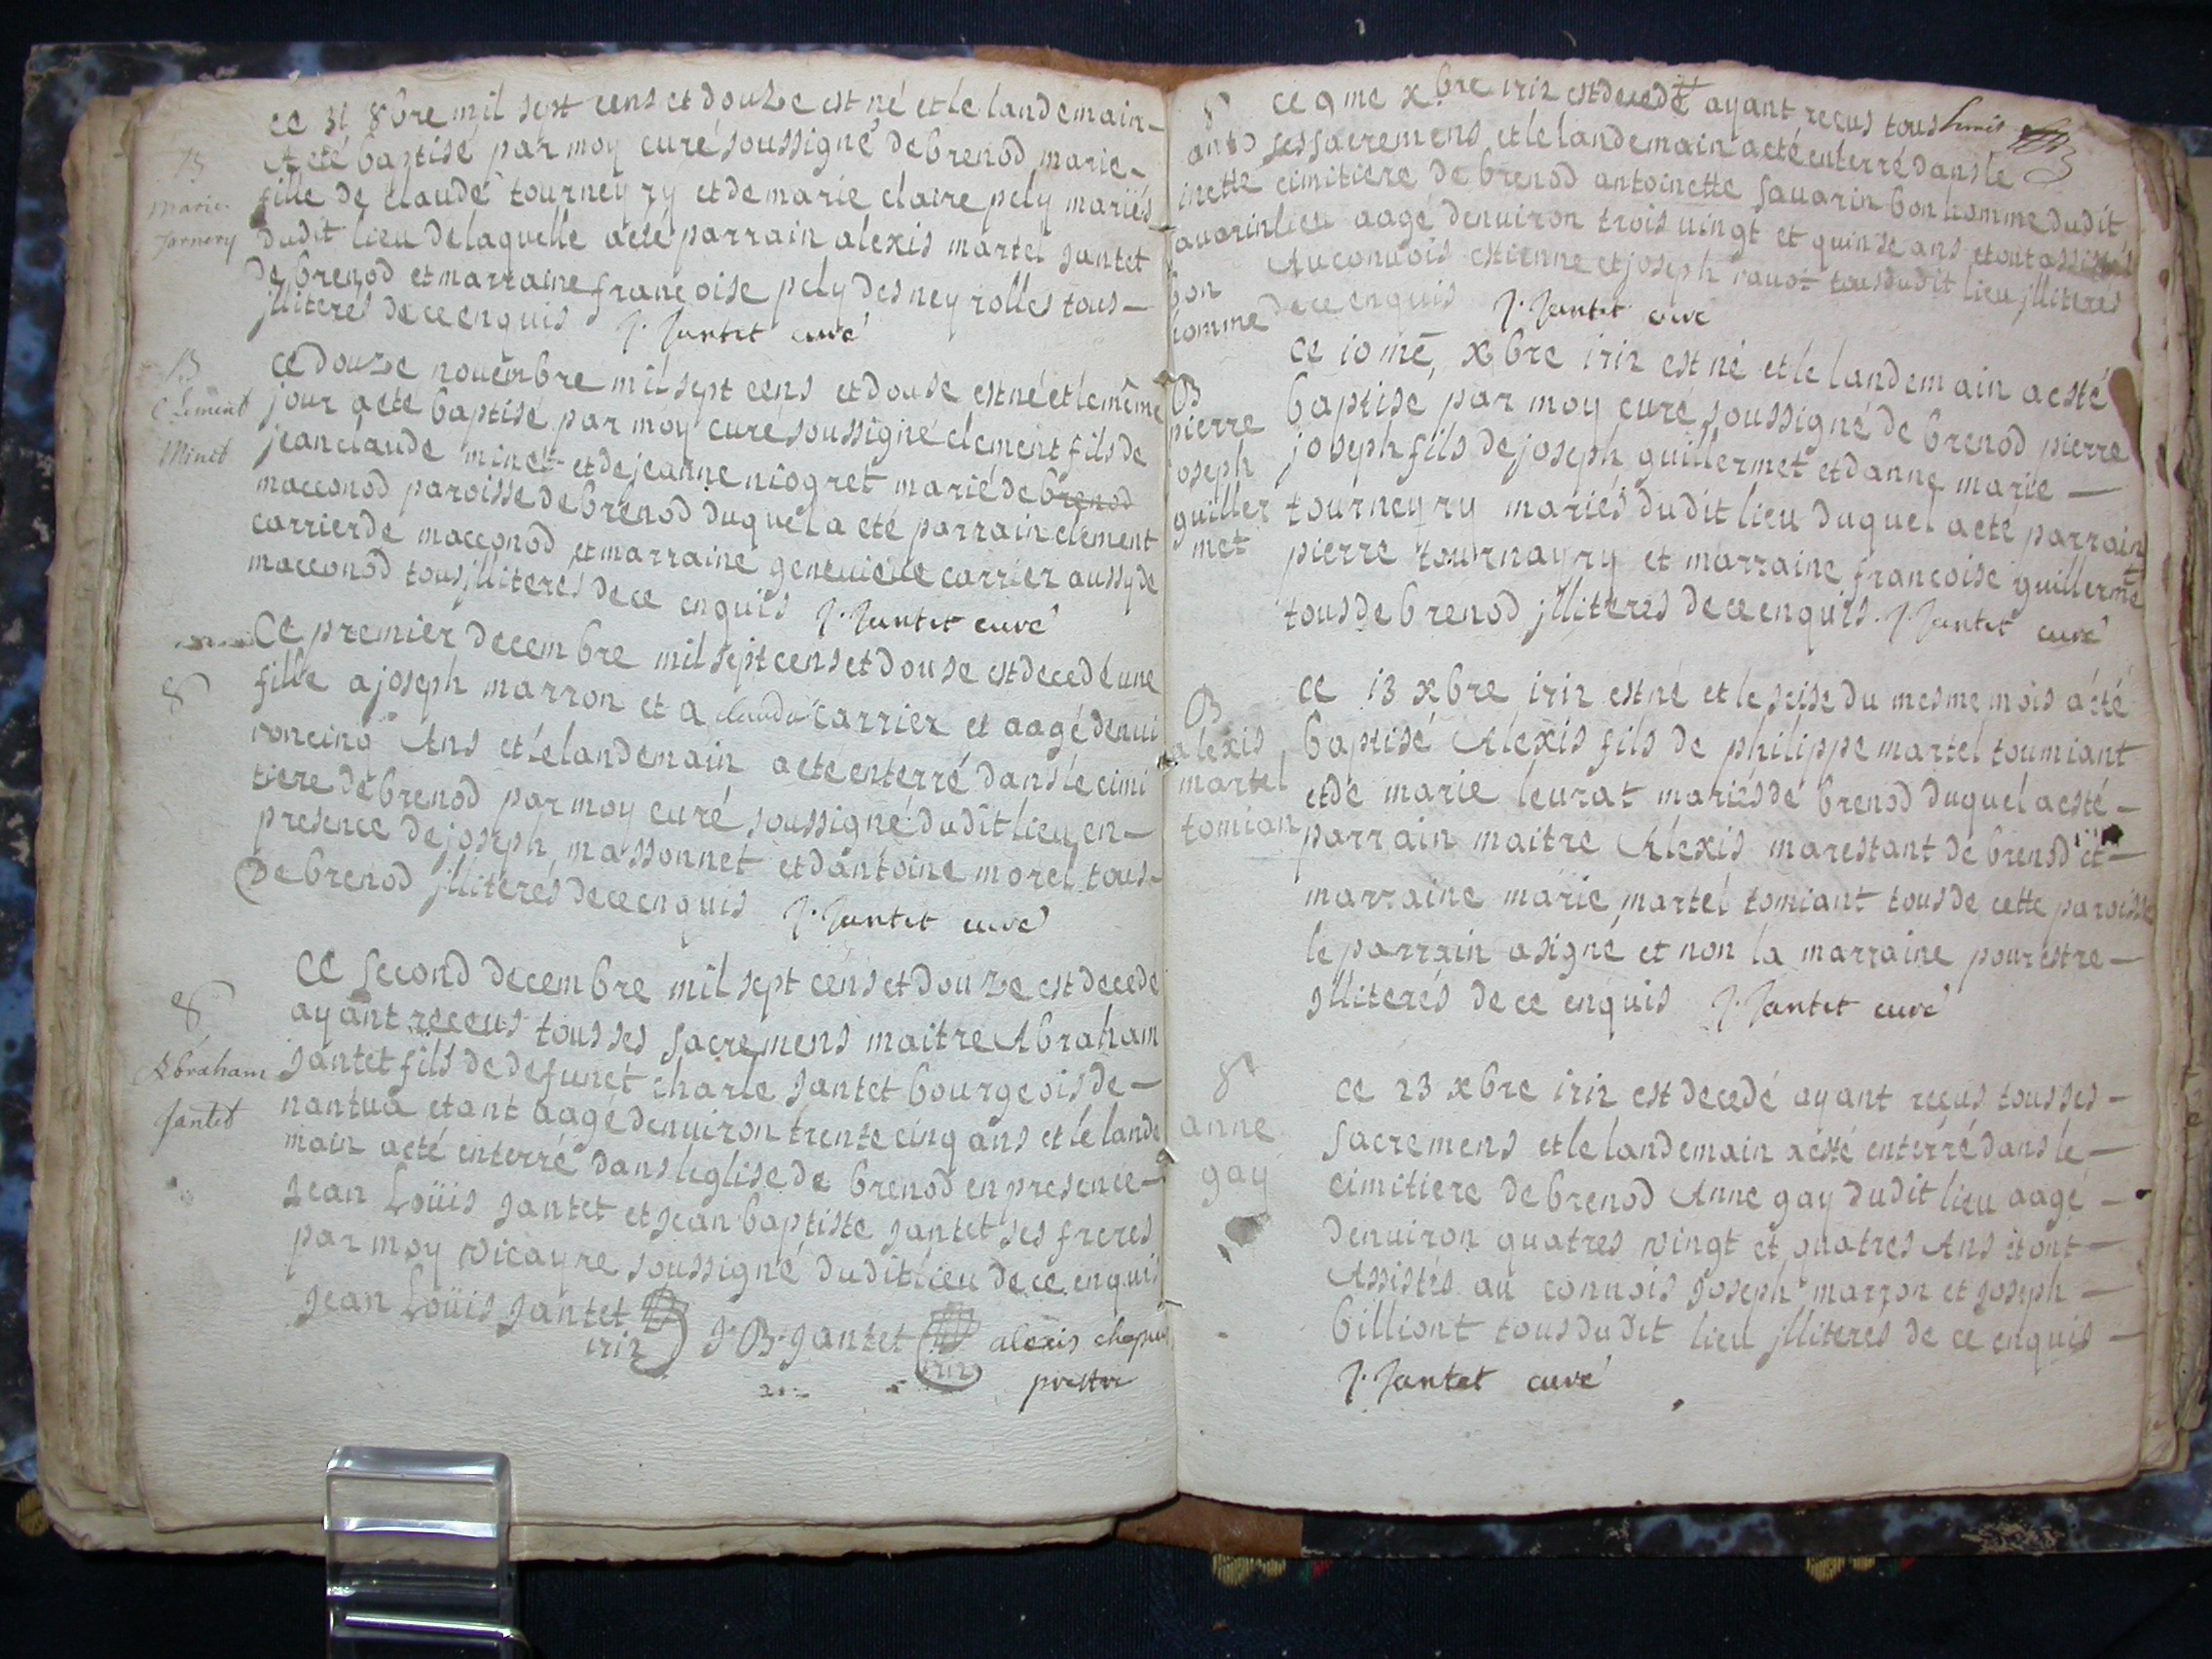 ce 31 8bre mil sept cens et douze est né et le landemain
B
A eté baptisé par moy curé soussigné de brenod marie
marie
fille de claude tourneyry et de marie claire pely mariés
Tornery
dudit lieu de laquelle a eté parrain alexis martel Jantet
de brenod et marraine françoise pely des neyrolles tous
jlliterés de ce enquis J. Jantet curé
B
ce douze novembre mil sept cens et douse est né et le même
Clement
jour a eté baptisé par moy curé soussigné clement fils de
Minet
jean claude minet et de jeanne niogret marié de brenod
macconod paroisse de brenod duquel a eté parrain clement
carrier de macconod et marraine genevieve carrier aussy de
macconod tous jlliterés de ce enquis J. Jantet curé
Ce premier decembre mil sept cens et douse est decedé une
8
fille a joseph marron et a clauda carrier et aagé denvi
ron cinq Ans et le landemain a eté enterré dans le cimi
tiere de brenod par moy curé soussigné dudit lieu en
presence de joseph massonnet et dantoine morel tous
de brenod jlliterés de ce enquis J. Jantet curé
Ce second decembre mil sept cens et douze est decedé
8
ayant receus tous ses sacremens maitre Abraham
Abraham
Jantet fils de defunct charle Jantet bourgeois de
Jantet
nantua etant aagé denviron trente cinq ans et le lande
main a eté enterré dans leglise de brenod en presence
Jean Loüis Jantet et Jean baptiste Jantet ses freres
par moy vicayre soussigné dudit lieu de ce enquis
Jean Loüis Jantet J. B. Jantet alexis chapuis
1712 1712 prestre
8
ce 9me xbre 1712 est decedé ayant reçus tous
antoinette savarin bon homme
ses sacremens et le landemain a eté enterré dans le
cimitiere de brenod antoinette savarin bon homme dudit
lieu aagé denviron trois vingt et quinse ans et ont assistés
Au convois estienne et joseph ravot tous dudit lieu jlliterés
de ce enquis J. Jantet curé
ce 10me xbre 1712 est né et le landemain a esté
B
pierre joseph guillermet
baptisé par moy curé soussigné de brenod pierre
joseph fils de joseph guillermet et danne marie
tourneyry mariés dudit lieu duquel a eté parrain
pierre tournayry et marraine françoise guillermet
tous de brenod jlliterés de ce enquis. J. Jantet curé
ce 13 xbre 1712 est né et le seise du mesme mois a eté
B
alexis martel tomian
baptisé Alexis fils de philippe martel toumiant
et de marie leurat mariés de brenod duquel a esté
parrain maitre Alexis marestant de brenod et
marraine marie martel tomiant tous de cette paroisse
le parrain a signé et non la marraine pour estre
jlliterés de ce enquis J. Jantet curé
8
anne gay
ce 23 xbre 1712 est decedé ayant reçus tous ses
sacremens et le landemain a esté enterré dans le
cimitiere de brenod Anne gay dudit lieu aagé
denviron quatres vingt et quatres Ans et ont
Assistés au convois Joseph marron et Joseph
billiont tous dudit lieu jlliterés de ce enquis
J. Jantet curé